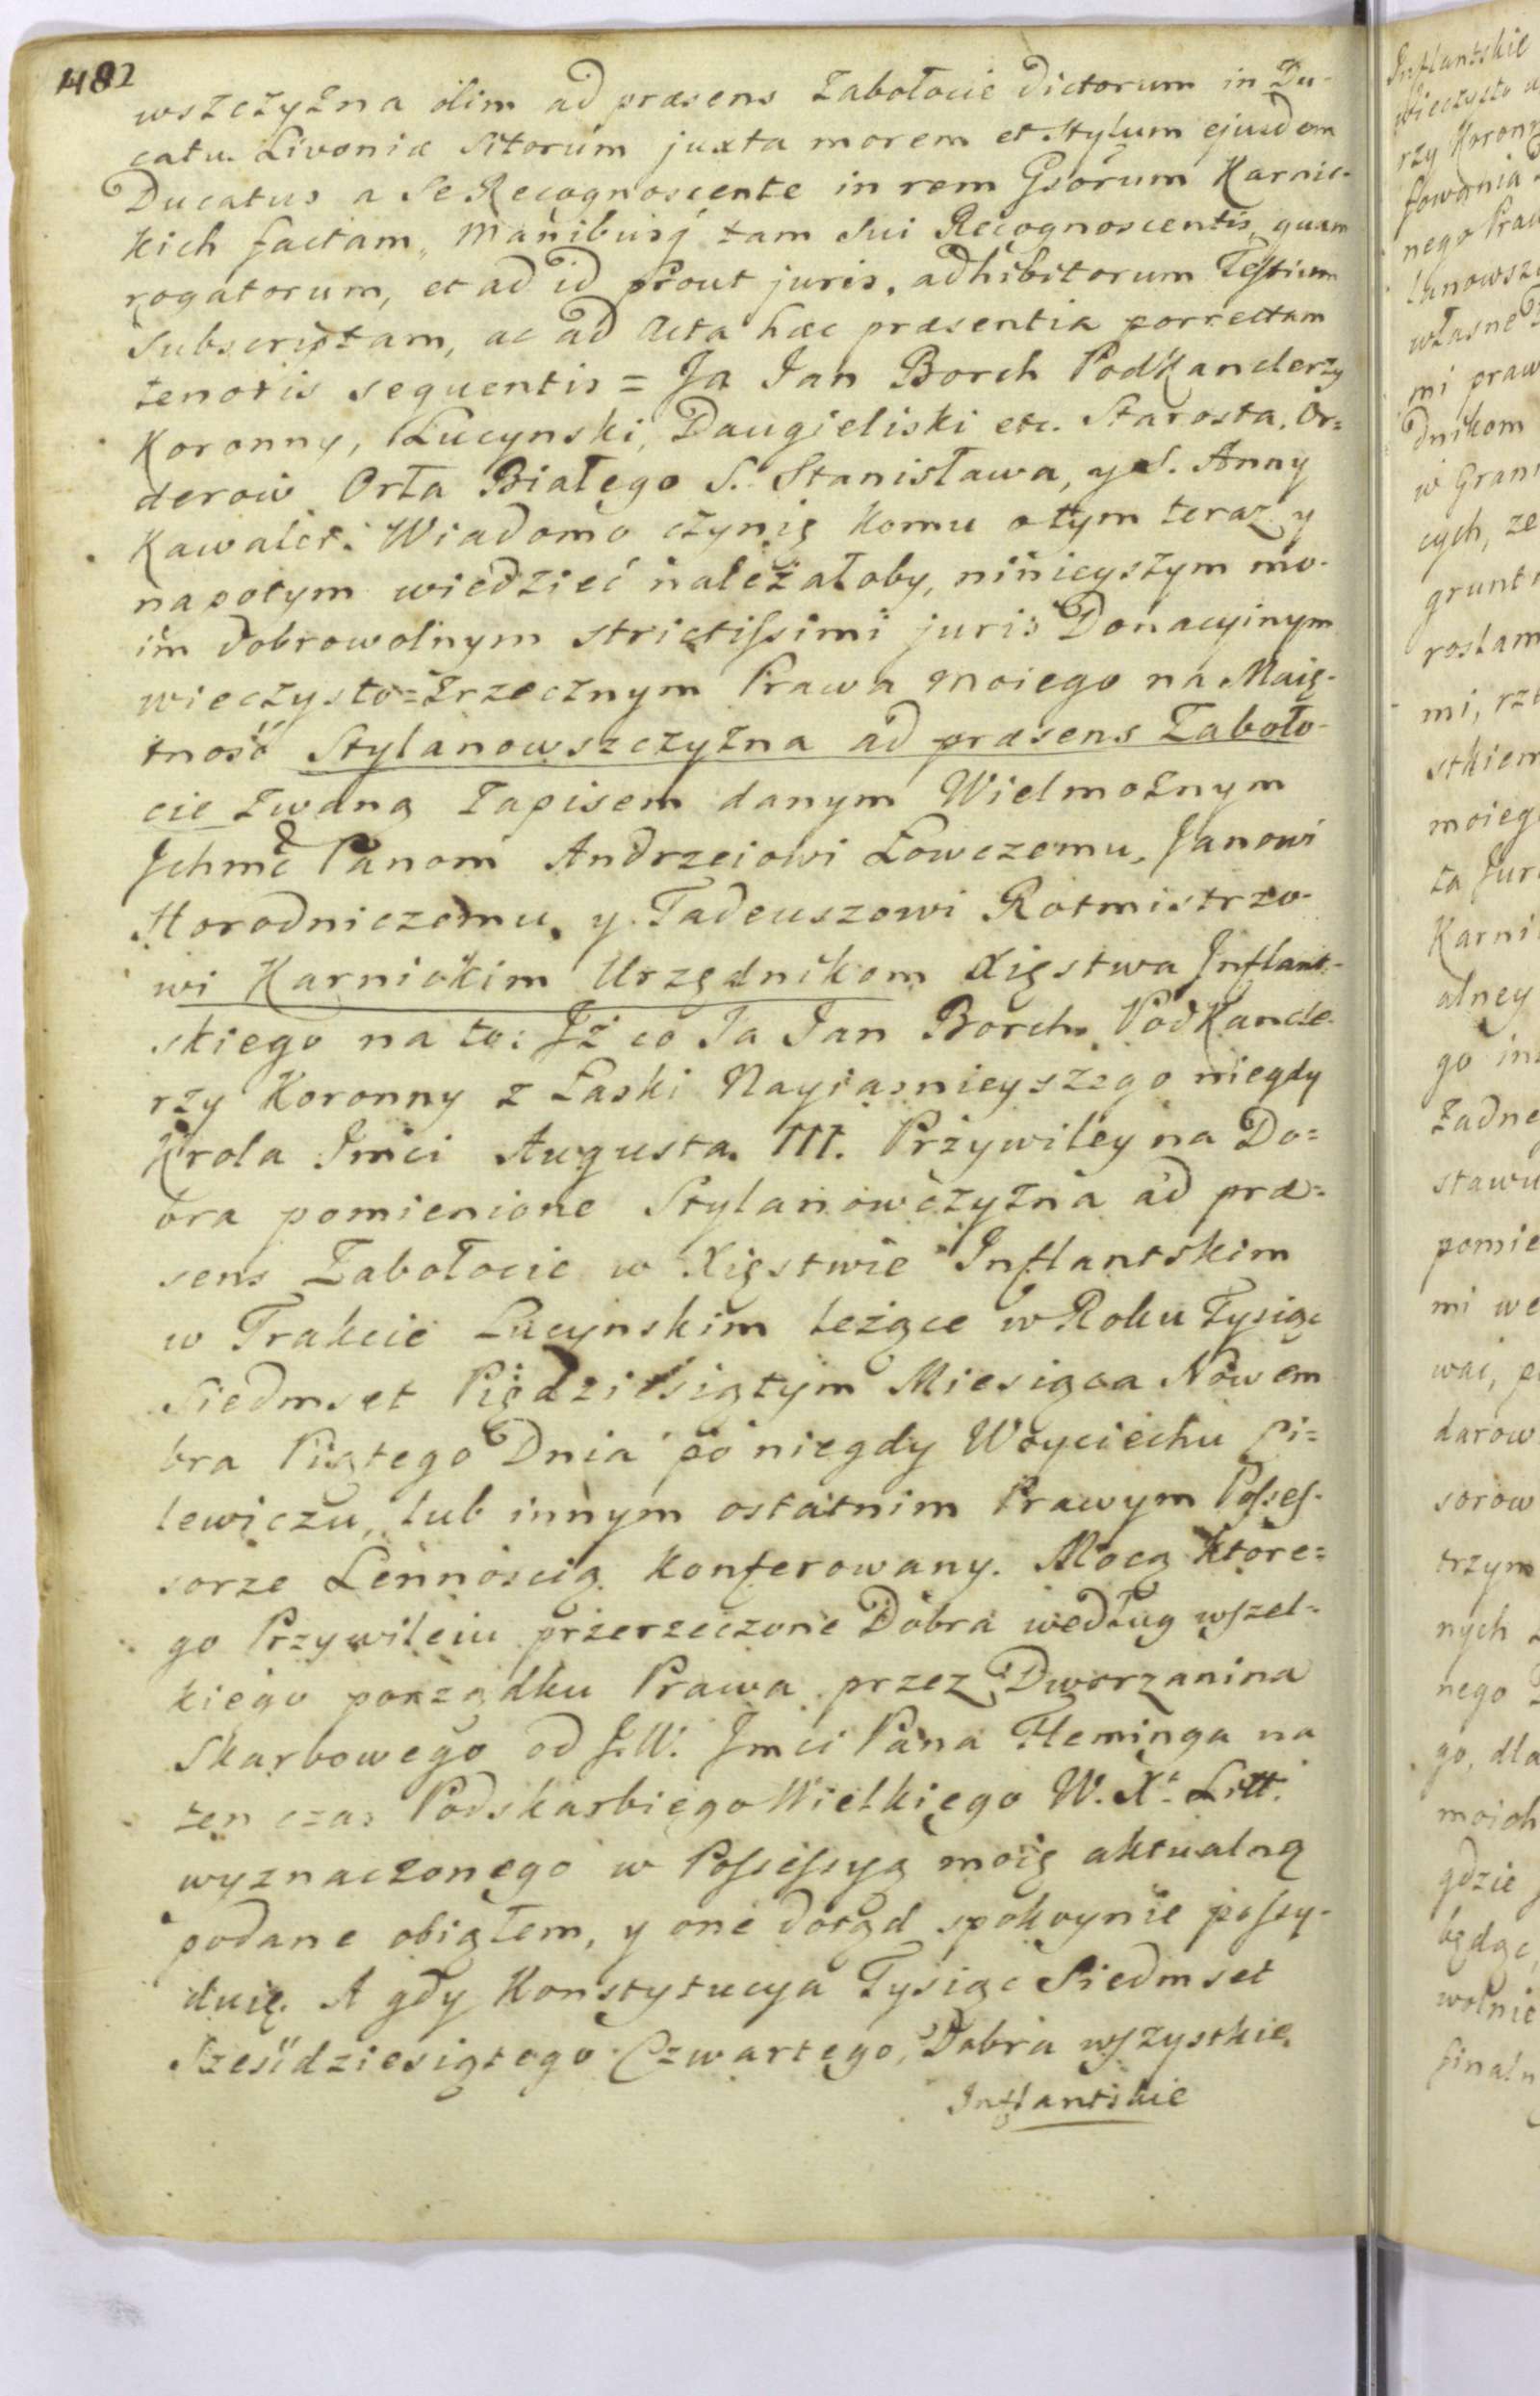 482
wszczyzna olim ad præsens Zabołocie dictorum in Du-
catu Livoniæ Sitorum juxta morem et Stylum ejusdem
Ducatus a Se Recognoscente in rem Gsorum Karnic-
kich factam, Manibusq tam Sui Recognoscentis, quam
rogatorum, et ad id prout juris, adhibitorum Testium
Subscriptam, ac ad Acta hæc præsentia porrectam
tenoris sequentis = Ja Jan Borch PodKanclerzy
Koronny, Lucynski, Daugieliski etc. Starosta, Or=
derow Orła Białego S. Stanisława, y S. Anny
Kawaler. Wiadomo czynię komu o tym teraz y
napotym wiedzieć należałoby, ninieyszym mo-
im dobrowolnym strictissimi juris Donacyinym
wieczysto=zrzecznym Prawa moiego na Maię-
tność Stylanowszczyzna ad præsens Zaboło-
cie zwaną Zapisem danym Wielmożnym
Ichmć Panom Andrzeiowi Łowczemu, Janowi
Horodniczemu, y Tadeuszowi Rotmistrzo-
wi Karnickim Urzędnikom Xięstwa Inflant-
skiego na to: Iż co Ja Jan Borch PodKancle-
rzy Koronny z Łaski Nayiasnieyszego niegdy
Krola Imci Augusta III. Przywiley na Do=
bra pomienione Stylanowczyzna ad præ=
sens Zabołocie w Xięstwie Inflantskim
w Trakcie Lucynskim leżące w Roku Tysiąc
Siedmset Piędziesiątym Miesiąca Nowem
bra Piątego Dnia po niegdy Woyciechu Pi=
lewiczu, lub innym ostatnim Prawym Posses-
sorze Lennością konferowany. Mocą które=
go Przywileiu przerzeczone Dobra według wszel-
kiego porządku Prawa przez Dworzanina
Skarbowego od J.W. Jmci Pana Fleminga na
ten czas Podskarbiego Wielkiego W. Xa. Litt.
wyznaczonego w Possessyą moię aktualną
podane obiąłem, y one dotąd spokoynie possy-
duię. A gdy Konstytucya Tysiąc Siedmset
Sześćdziesiątego Czwartego, Dobra wszystkie
Inflantskie
Inflantskie
wieczysto
rzy Koron
sowania
nego Praw
lanowsz
własne
mi praw
dnikom
w Gran
cych, ze
grunt
rostam
mi, rz
stkiem
moieg
ta Jur
Karni
alney
go in
żadne
stawu
pomie
mi we
wać, p
darow
sorow
trzym
nych
nego
go, dla
moich
gdzie
będąc
wolnie
finaln